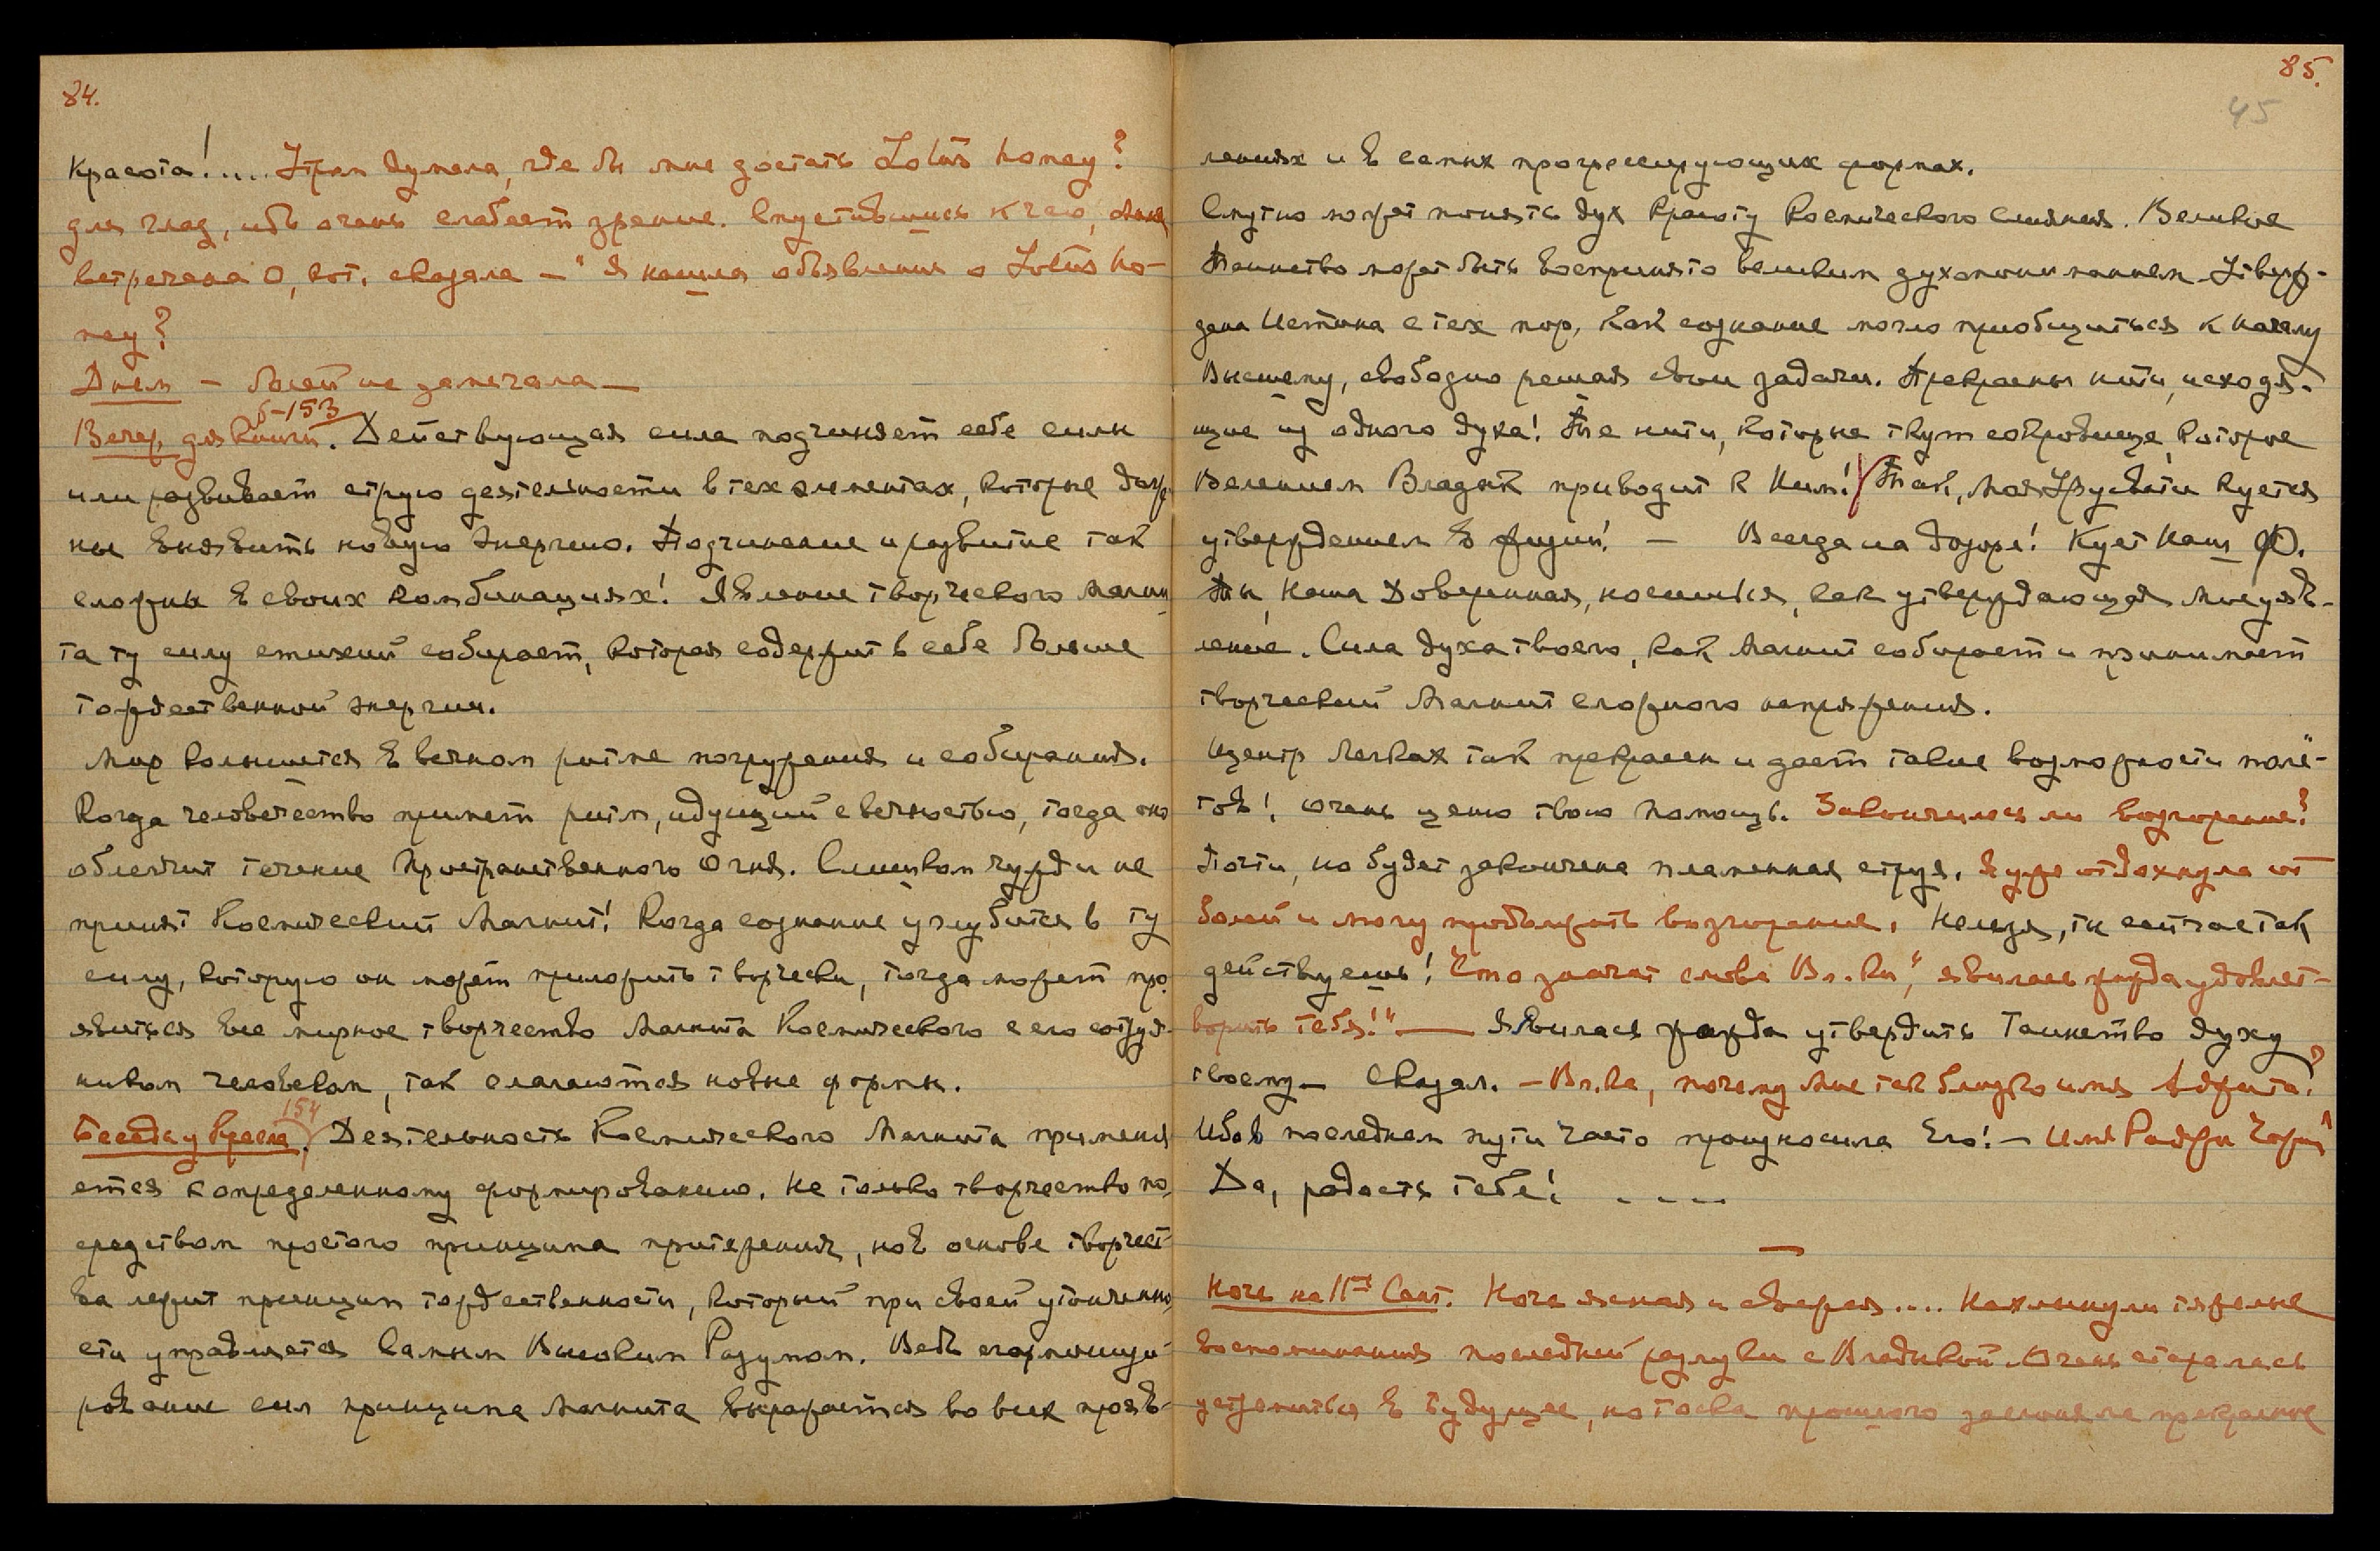 84.
Красота!.... Утром думала, где бы мне достать Lotus honey?
для глаз, ибо очень слабеет зрение. Спустившись к чаю, меня
встретила О, кот. сказала — "Я нашла объявление о Lotus ho-
ney?
Днем — болей не замечала —
Вечер, для Книги. Б-153 Действующая сила подчиняет себе силы
или развивает струю деятельности в тех элементах, которые долж-
ны выявить новую энергию. Подчинение и развитие так
сложны в своих комбинациях! Явление творческого магни-
та ту силу стихий собирает, которая содержит в себе больше
тождественной энергии.
Мир колышется в вечном ритме погружения и собирания.
Когда человечество примет ритм, идущий с вечностью, тогда оно
облегчит течение Пространственного Огня. Слишком чужд и не
принят Космический Магнит! Когда сознание углубится в ту
силу, которую он может приложить творчески, тогда может про-
явиться все мирное творчество Магнита Космического с его сотруд-
ником человеком, так слагаются новые формы.
Беседа у Кресла. 154 Деятельность Космического Магнита применя-
ется к определенному формированию. Не только творчество по-
средством простого принципа притяжения, но в основе творчест-
ва лежит принцип тождественности, который при своей утонченно-
сти управляется самым Высоким Разумом. Ведь сгармонизи-
рование сил принципа Магнита выражается во всех прояв-
85.
45
лениях и в самых прогрессирующих формах.
Смутно может понять дух красоту Космического Слияния. Великое
Таинство может быть воспринято великим духопониманием. Утверж-
дена Истина с тех пор, как сознание могло приобщиться к Началу
Высшему, свободно решая свои задачи. Прекрасны нити, исходя-
щие из одного духа! Те нити, которые ткут сокровище, которое
Велением Владык приводит к Ним! Так, Моя Урусвати куется
утверждением в жизни! — Всегда на дозоре! Кует Наш Ф.
Ты, Наша Доверенная, носишься, как утверждающая Мое уяв-
ление. Сила духа твоего, как магнит собирает и принимает
творческий Магнит сложного напряжения.
И центр Легких так прекрасен и дает такие возможности полё-
тов! Очень ценю твою помощь. Закончилось ли возгорание?
Почти, но будет закончена пламенная струя. Я уже отдохнула от
болей и могу продолжить возгорание. Нельзя, ты сейчас так
действуешь! Что значат слова Вл. Кн, "явилась жажда удовлет-
ворить тебя!" — Явилась жажда утвердить Таинство духу
твоему — сказал. — Вл. Ка, почему Мне так близко имя Аджита?
Ибо в последнем пути часто произносила Его! — Имя Раджи
Да, радость тебе! ....
Ночь на 11ое Сент. Ночь ясная и свежая.... Нахлынули тяжелые
воспоминания последней разлуки с Владыкой. Очень старалась
устремиться в будущее, но тоска прошлого заслоняла прекрасное